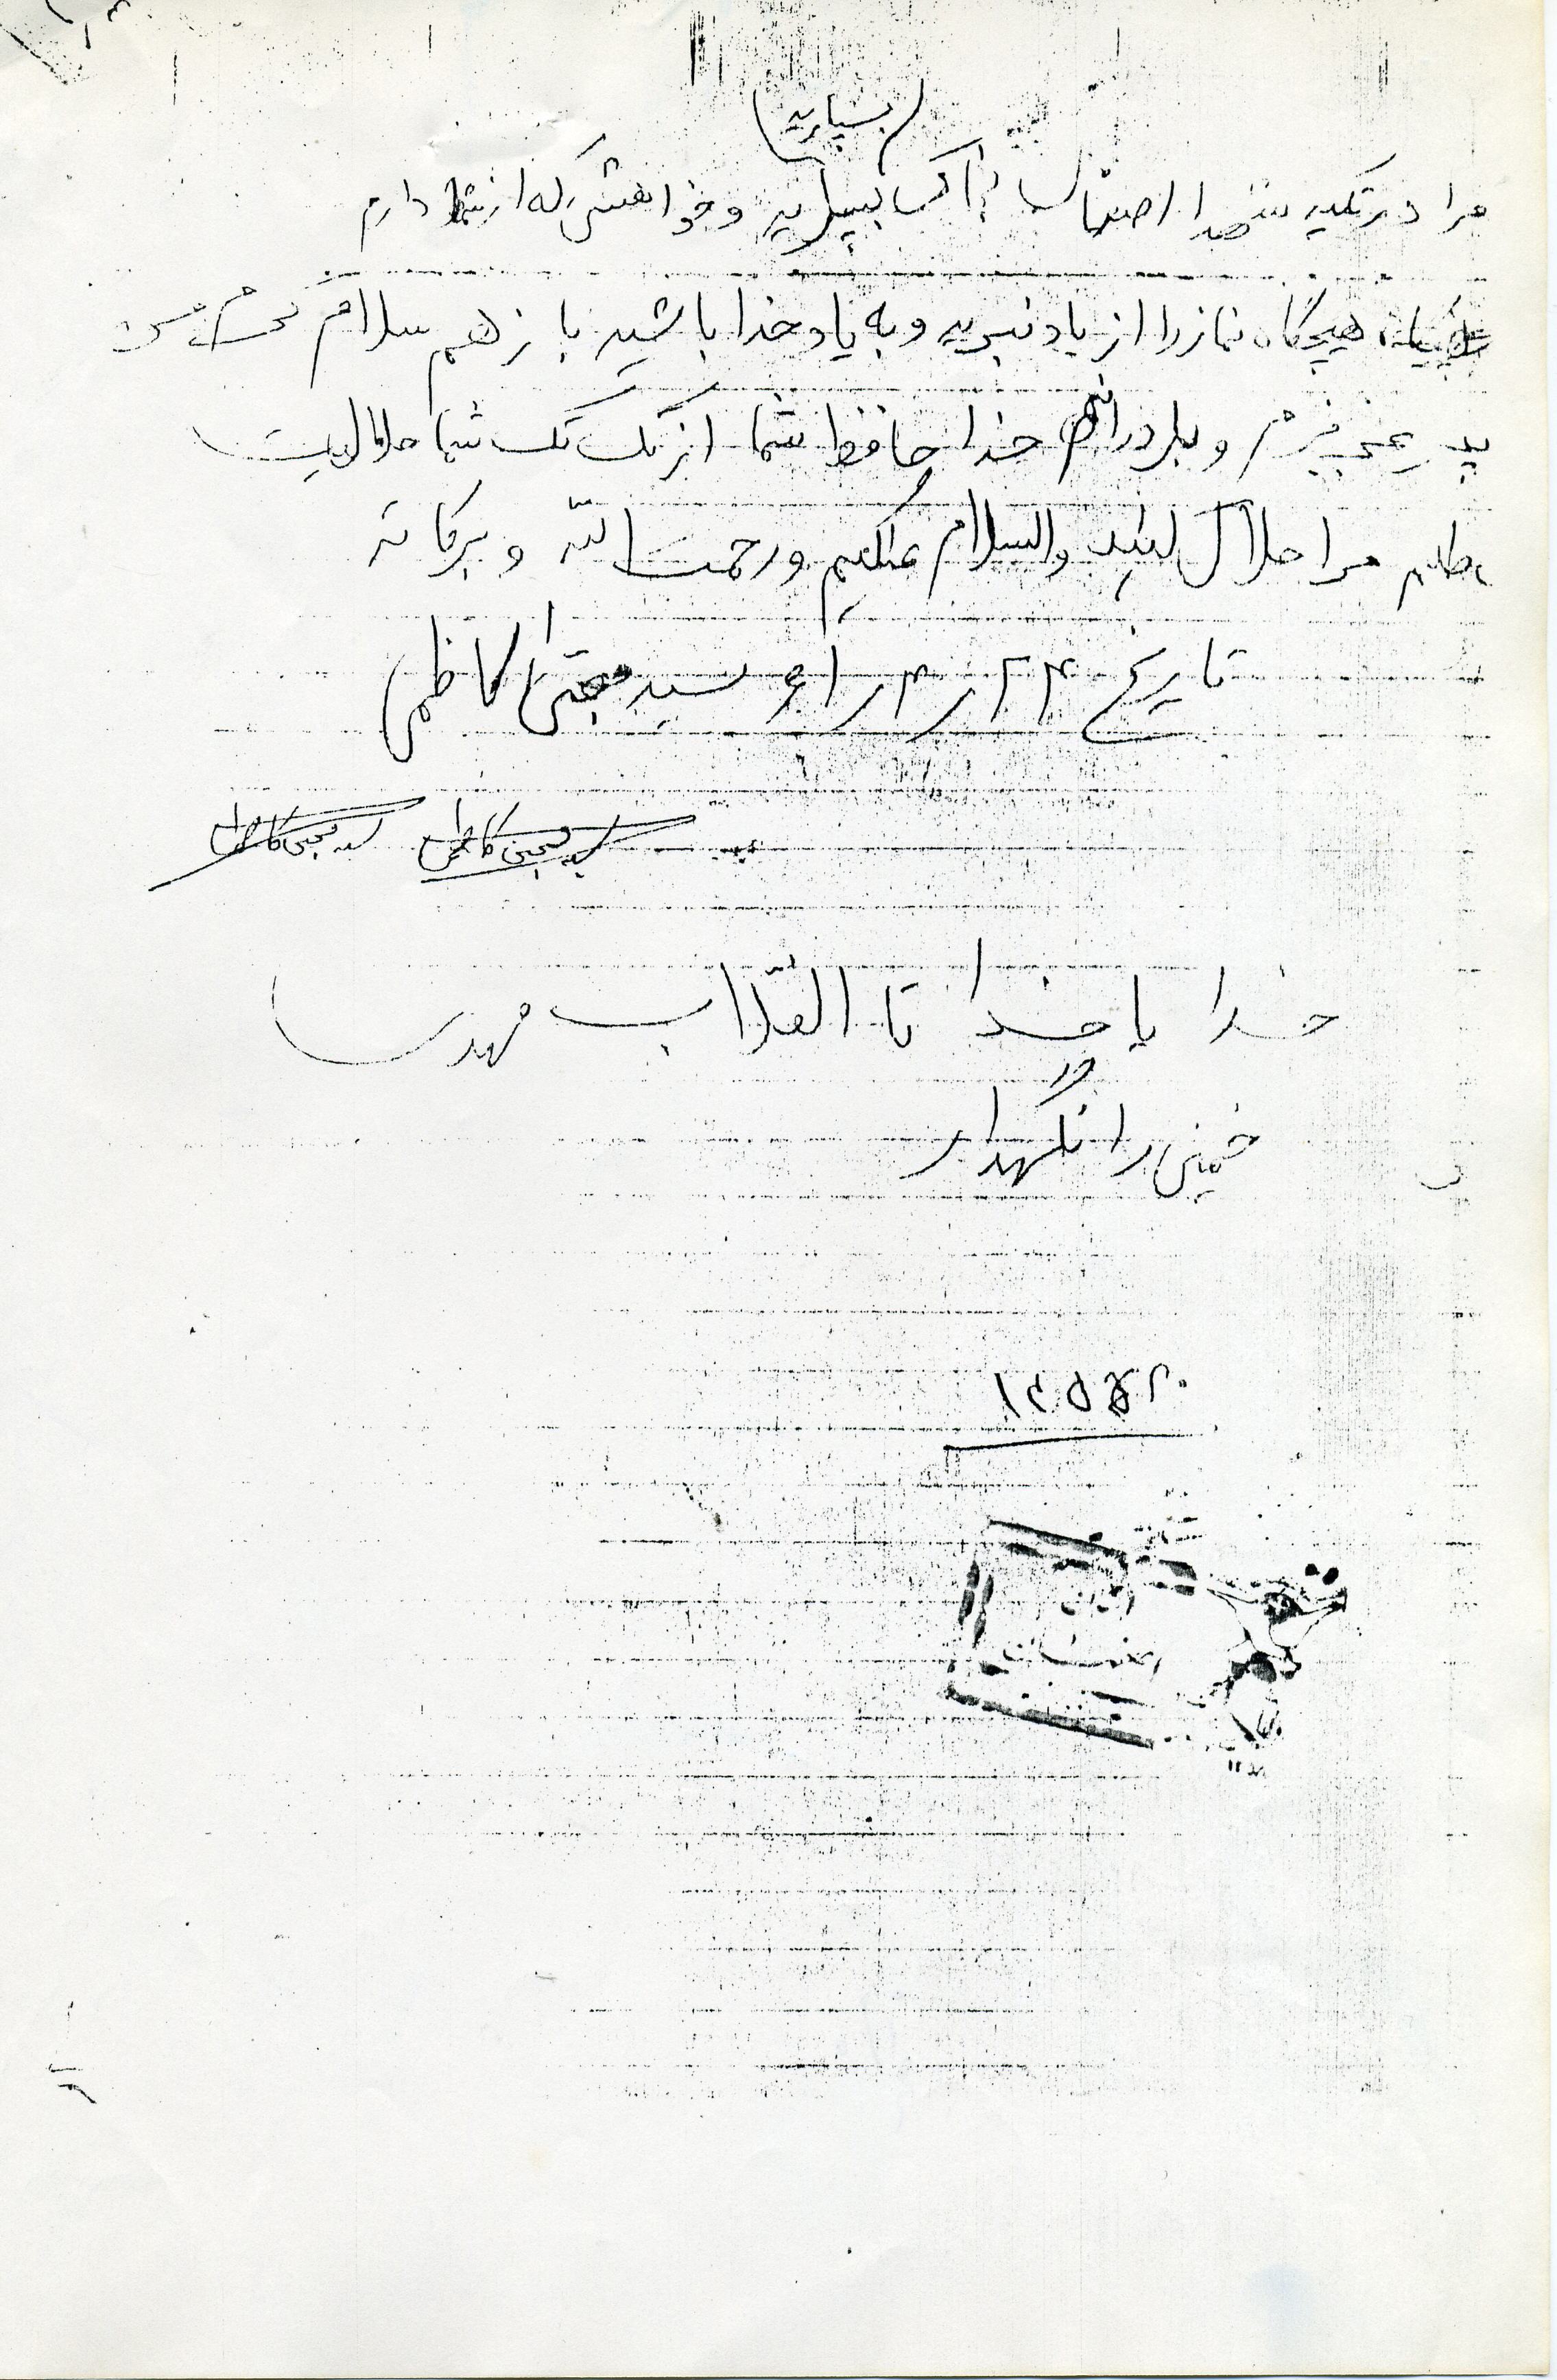 بسپارید
مرا در تکیه شهدا اصفهان بخاک بسپارید و خواهشی که از شما دارم
هیچگاه نماز را از یاد نبرید و به یاد خدا باشید باز هم سلام
پدر عزیزم و برادرانم خدا حافظ شما از تک تک شما حلالیت
مطلبم مرا حلال کنید والسلام علیکم ورحمت الله و برکاته
تاریخ ۲۴ر۴ر۶۱ سید مجتبی کاظمی
سید مجتبی کاظمی سید مجتبی کاظمی
خدا یا خدا تا انقلاب مهدی
خمینی را نگهدار